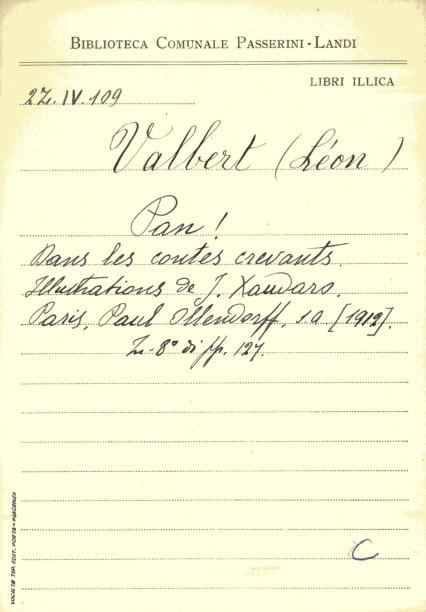 BIBLIOTECA COMUNALE PASSERINI-LANDI
LIBRI ILLICA
2Z.IV.109
Valbert (Léon)
Pan!
Dans les contes crevants.
Illustrations de J. Xaudaro.
Paris, Paul Ollendorff, s.a [1912].
In-8° di pp. 127.
C
SOCIETÀ TIP. EDIT. PORTA - PIACENZA